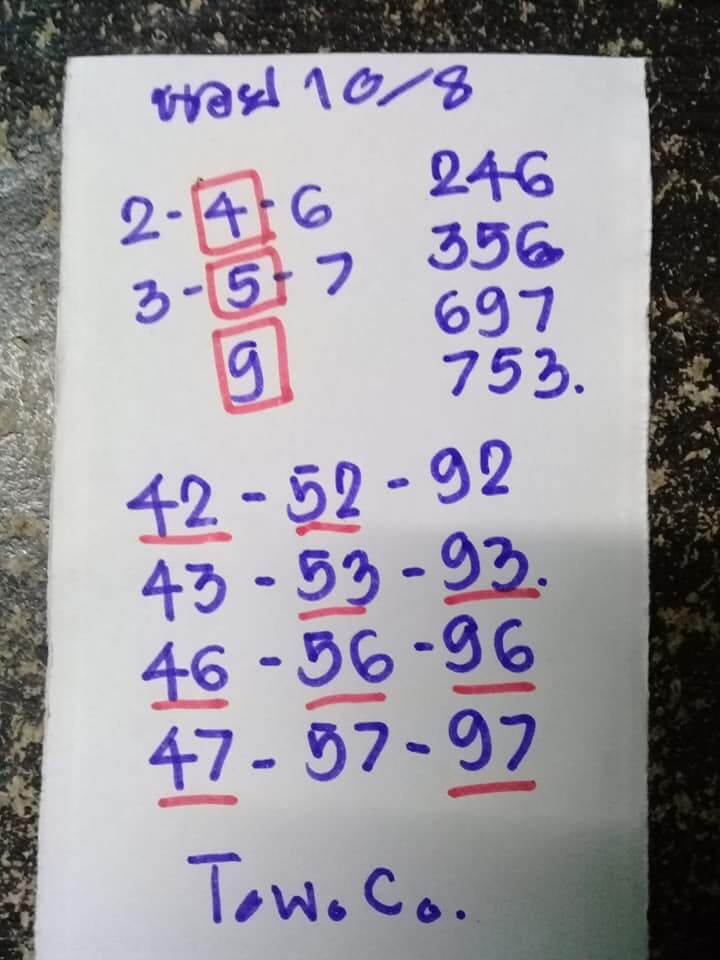 หอย 10/8
2-4-6 246
3-5-7 356
9 697
753.
42 - 52 - 92
43 - 53 - 93.
46 - 56 - 96
47 - 57 - 97
T.W.C.